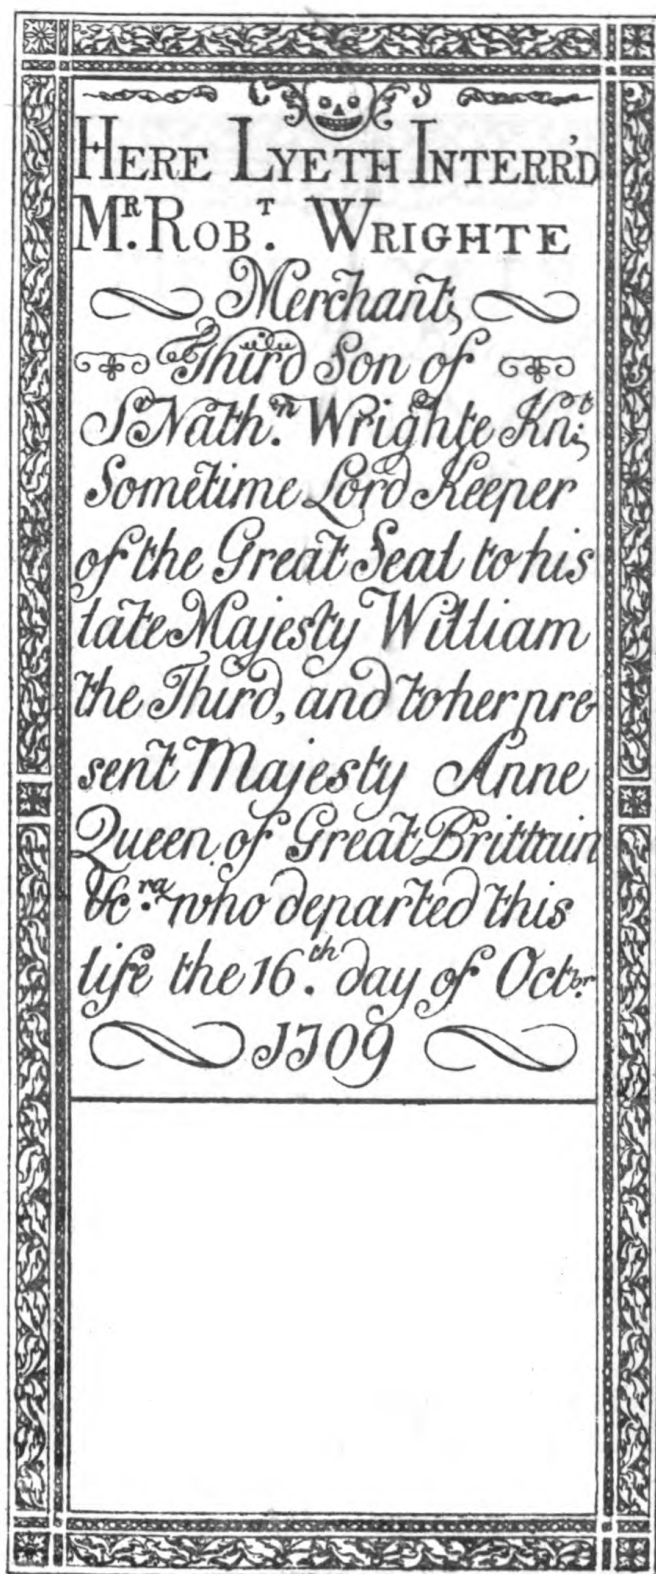 HERE LYETH INTERR'D
Mr. ROBT. WRIGHTE
Merchant,
Third Son of
Sr Nathn. Wrighte Knt;
Sometime Lord Keeper
of the Great Seal to his
late Majesty William
the Third, and to her pre
sent Majesty Anne
Queen of Great Brittain
&cra. who departed this
life the 16th. day of Octbr.
1709